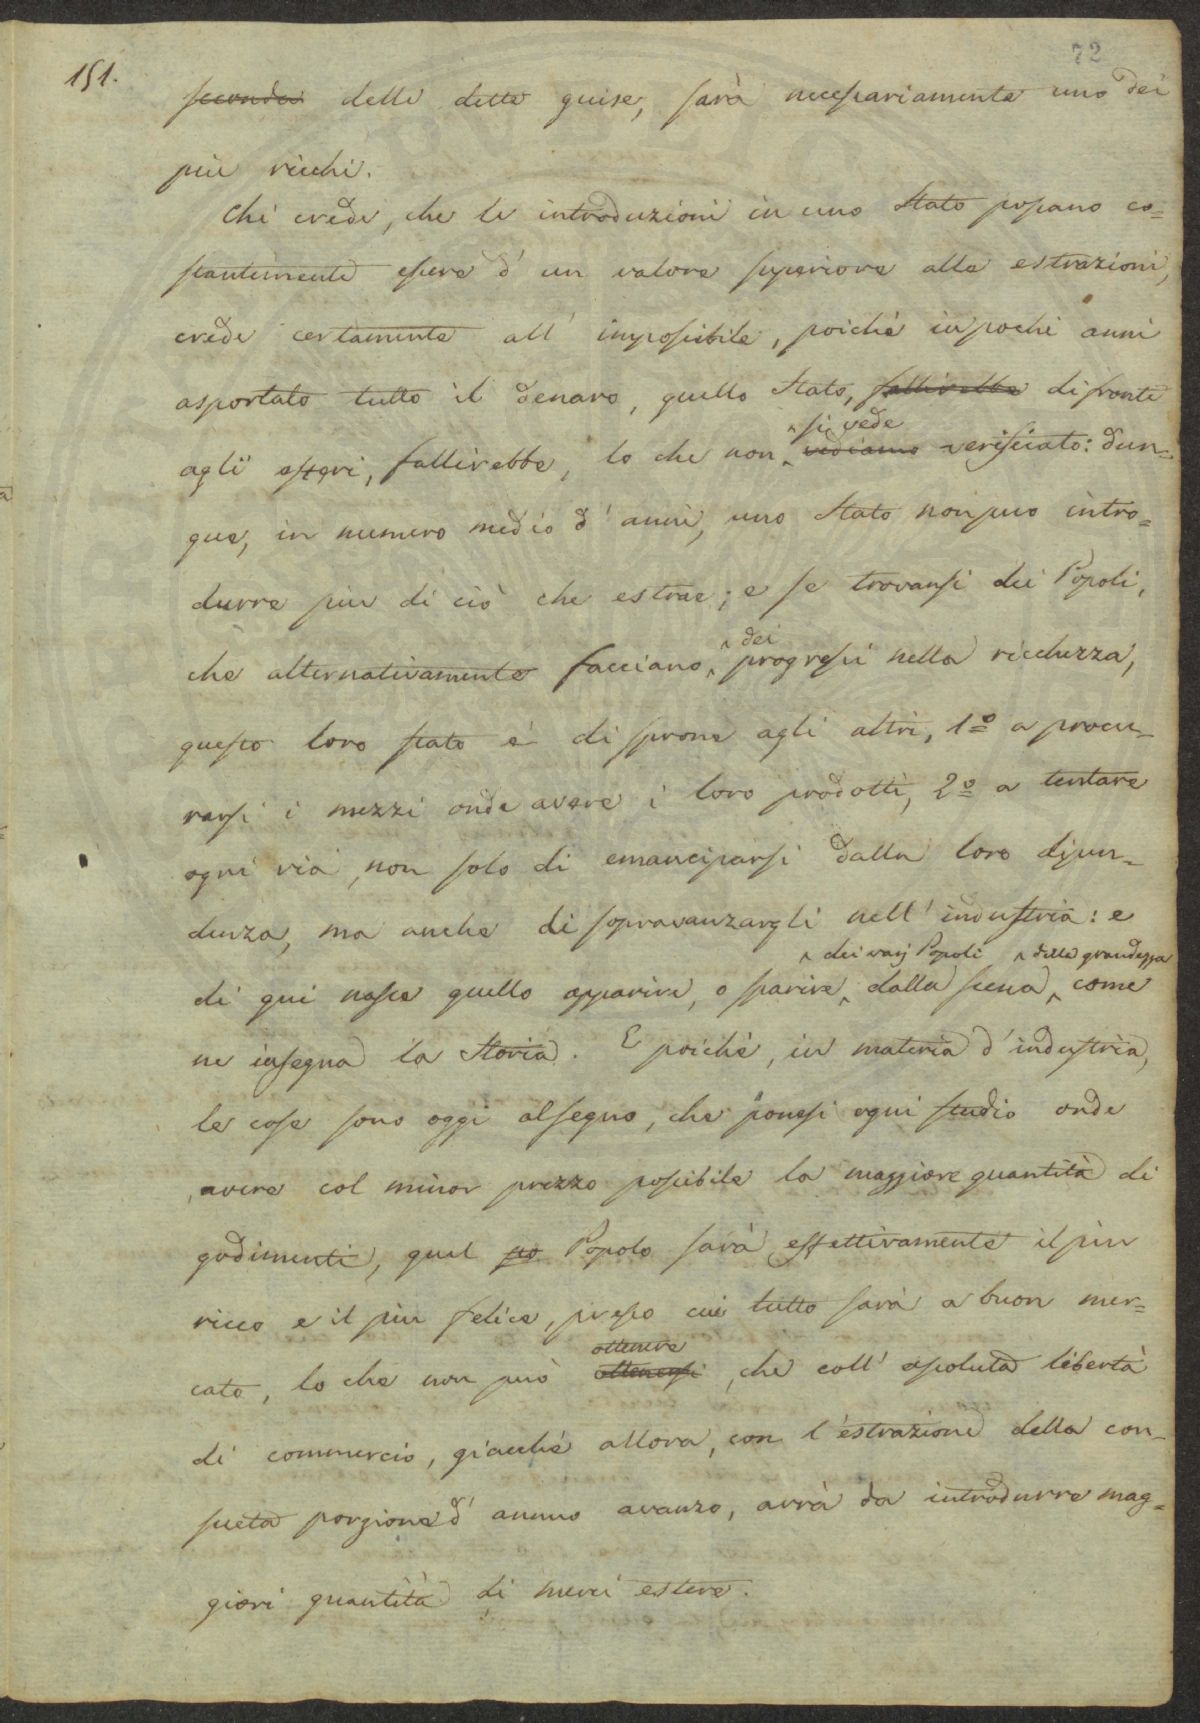 72
151.
seconda delle dette guise, sarà necessariamente uno dei
più ricchi.
Chi crede, che le introduzioni in uno Stato possano co=
stantemente essere d'un valore superiore alle estrazioni,
crede certamente all'impossibile, poiché in pochi anni
asportato tutto il denaro, quello Stato, fallirebbe di fronte
si vede
agli esteri, fallirebbe, lo che non vediamo verificato: dun=
que, in numero medio d'anni, uno Stato non puo intro=
durre più di ciò che estrae; e se trovansi dei Popoli,
dei
che alternativamente facciano progressi nella ricchezza,
questo loro stato è di sprone agli altri, 1º a procu=
rarsi i mezzi onde avere i loro prodotti, 2º a tentare
ogni via, non solo di emanciparsi dalla loro dipen=
denza, ma anche di sopravanzargli nell'industria: e
dei varj Popoli della grandezza
di qui nasce quello apparire, o sparire dalla scena, come
ne insegna la Storia. E poiché, in materia d'industria,
le cose sono oggi al segno, che ponesi ogni studio onde
avere col minor prezzo possibile la maggiore quantità di
godimenti, quel po Popolo sarà effettivamente il più
ricco e il più felice, presso cui tutto sarà a buon mer=
ottenere
cato, lo che non può ottenersi, che coll'assoluta libertà
di commercio, giacché allora, con l'estrazione della con=
sueta porzione d'annuo avanzo, avrà da introdurre mag=
giori quantità di merci estere.